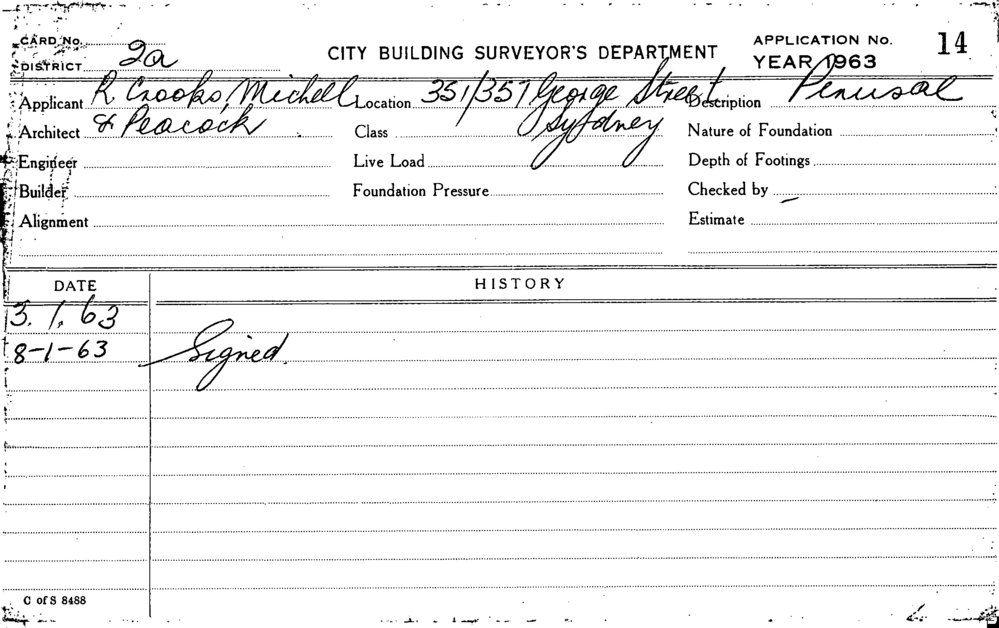 CARD No.
DISTRICT 2a
CITY BUILDING SURVEYOR'S DEPARTMENT
APPLICATION No. 14
YEAR 1963
Applicant R Crooks, Michell Location 351/357 George Street Description Perusal
Architect & Peacock Class Sydney Nature of Foundation
Engineer Live Load Depth of Footings
Builder Foundation Pressure Checked by
Alignment Estimate
DATE HISTORY
3. 1. 63
8-1-63 Signed.
C of S 8488